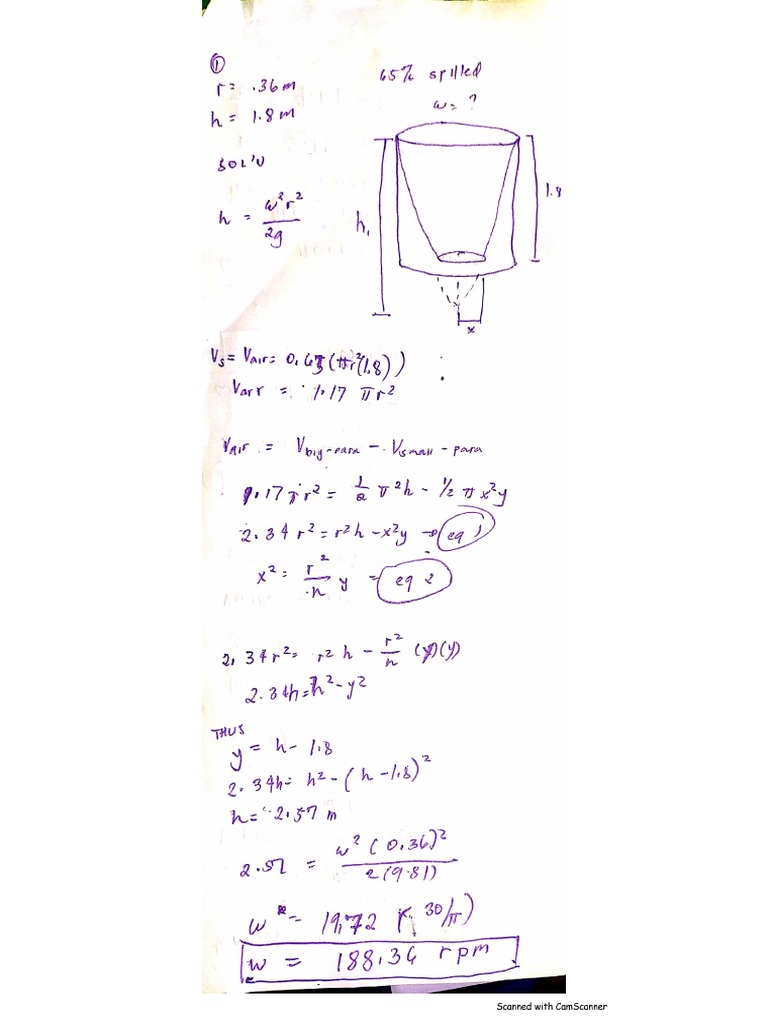 ①
r = .36m
h = 1.8m
65% spilled
w = ?
SOL'N
h = w²r²/2g
h₁
1.8
x
Vs = Vair = 0.65(πr²(1.8))
Vair = 1.17 πr²
Vair = Vbig-para - Vsmall-para
1.17πr² = 1/2 π²h - 1/2 πx²y
2.34r² = r²h - x²y → eq 1
x² = r²/h y = eq 2
2.34r² = r²h - r²/h (y)(y)
2.34h = h² - y²
THUS
y = h - 1.8
2.34h = h² - (h - 1.8)²
h = 2.57 m
2.57 = w²(0.36)²/2(9.81)
w = 19.72 (30/π)
w = 188.34 rpm
Scanned with CamScanner